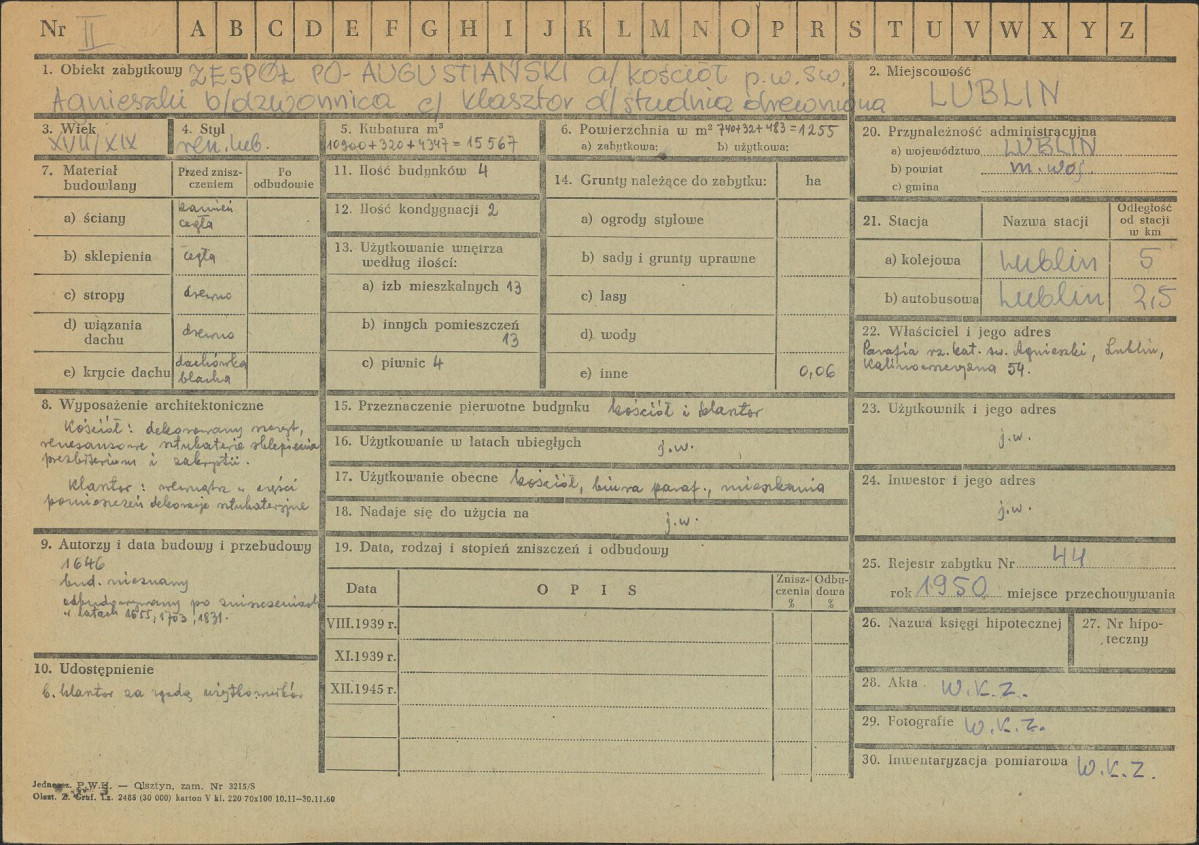 Nr II A B C D E F G H I J K L M N O P R S T U V W X Y Z
1. Obiekt zabytkowy ZESPÓŁ PO-AUGUSTIAŃSKI a/ kościół p.w. św.
Agnieszki b/dzwonnica c/ klasztor d/ studnia drewniana
2. Miejscowość
LUBLIN
3. Wiek
XVII/XIX
4. Styl
ren. lub.
5. Kubatura m³
10900+320+4347=15567
6. Powierzchnia w m² 740+32+483=1255
a) zabytkowa: b) użytkowa:
7. Materiał budowlany
Przed zniszczeniem
Po odbudowie
a) ściany kamień cegła
b) sklepienia cegła
c) stropy drewno
d) wiązania dachu drewno
e) krycie dachu dachówka blacha
8. Wyposażenie architektoniczne
Kościół: dekorowany szczyt,
renesansowe sztukaterie sklepienia
prezbiterium i zakrystii.
Klasztor: wewnątrz w części
pomieszczeń dekoracje sztukateryjne
9. Autorzy i data budowy i przebudowy
1646
bud. nieznany
odbudowywany po zniszczeniach
w latach 1655, 1703, 1831.
10. Udostępnienie
b. klasztor za zgodą użytkowników
11. Ilość budynków 4
12. Ilość kondygnacji 2
13. Użytkowanie wnętrza
według ilości:
a) izb mieszkalnych 13
b) innych pomieszczeń
13
c) piwnic 4
14. Grunty należące do zabytku: ha
a) ogrody stylowe
b) sady i grunty uprawne
c) lasy
d) wody
e) inne 0,06
15. Przeznaczenie pierwotne budynku kościół i klasztor
16. Użytkowanie w latach ubiegłych j.w.
17. Użytkowanie obecne kościół, biura paraf., mieszkania
18. Nadaje się do użycia na j.w.
19. Data, rodzaj i stopień zniszczeń i odbudowy
Data OPIS Zniszczenia % Odbudowa %
VIII.1939 r.
XI.1939 r.
XII.1945 r.
20. Przynależność administracyjna
a) województwo LUBLIN
b) powiat m. woj.
c) gmina
21. Stacja Nazwa stacji Odległość od stacji w km
a) kolejowa Lublin 5
b) autobusowa Lublin 2,5
22. Właściciel i jego adres
Parafia rz. kat. św. Agnieszki, Lublin,
Kalinowszczyzna 54.
23. Użytkownik i jego adres
j.w.
24. Inwestor i jego adres
j.w.
25. Rejestr zabytku Nr 44
rok 1950 miejsce przechowywania
26. Nazwa księgi hipotecznej
27. Nr hipoteczny
28. Akta W.K.Z.
29. Fotografie W.K.Z.
30. Inwentaryzacja pomiarowa W.K.Z.
P.W.H. — Olsztyn, zam. Nr 3215/S
Olszt. Z. Graf. Lz. 2485 (30 000) karton V kl. 220 70x100 10.11—30.11.60